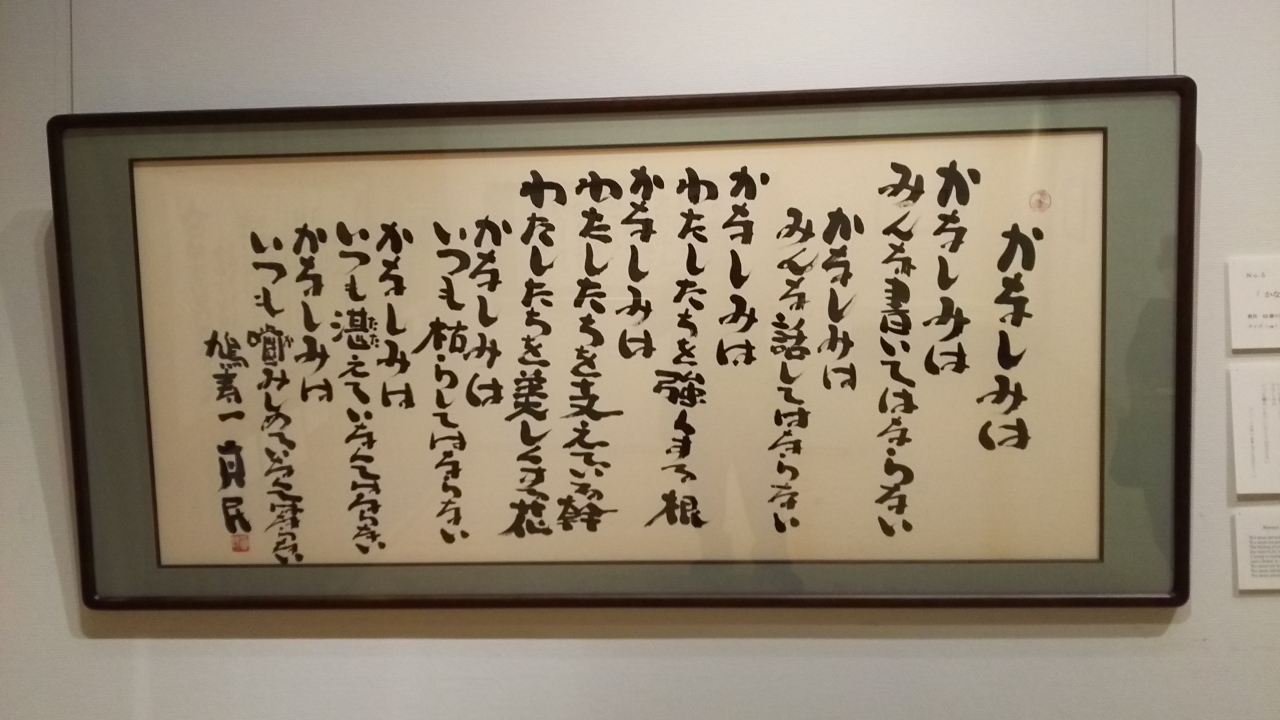 かなしみは
かなしみは
みんな書いてはならない
かなしみは
みんな話してはならない
かなしみは
わたしたちを強くする根
かなしみは
わたしたちを支えている幹
わたしたちを美しくする花
かなしみは
いつも枯らしてはならない
かなしみは
いつも湛えていなくてはならない
かなしみは
いつも嚙みしめていなくてはならない
鳩寿一 真民
No.5
「かな